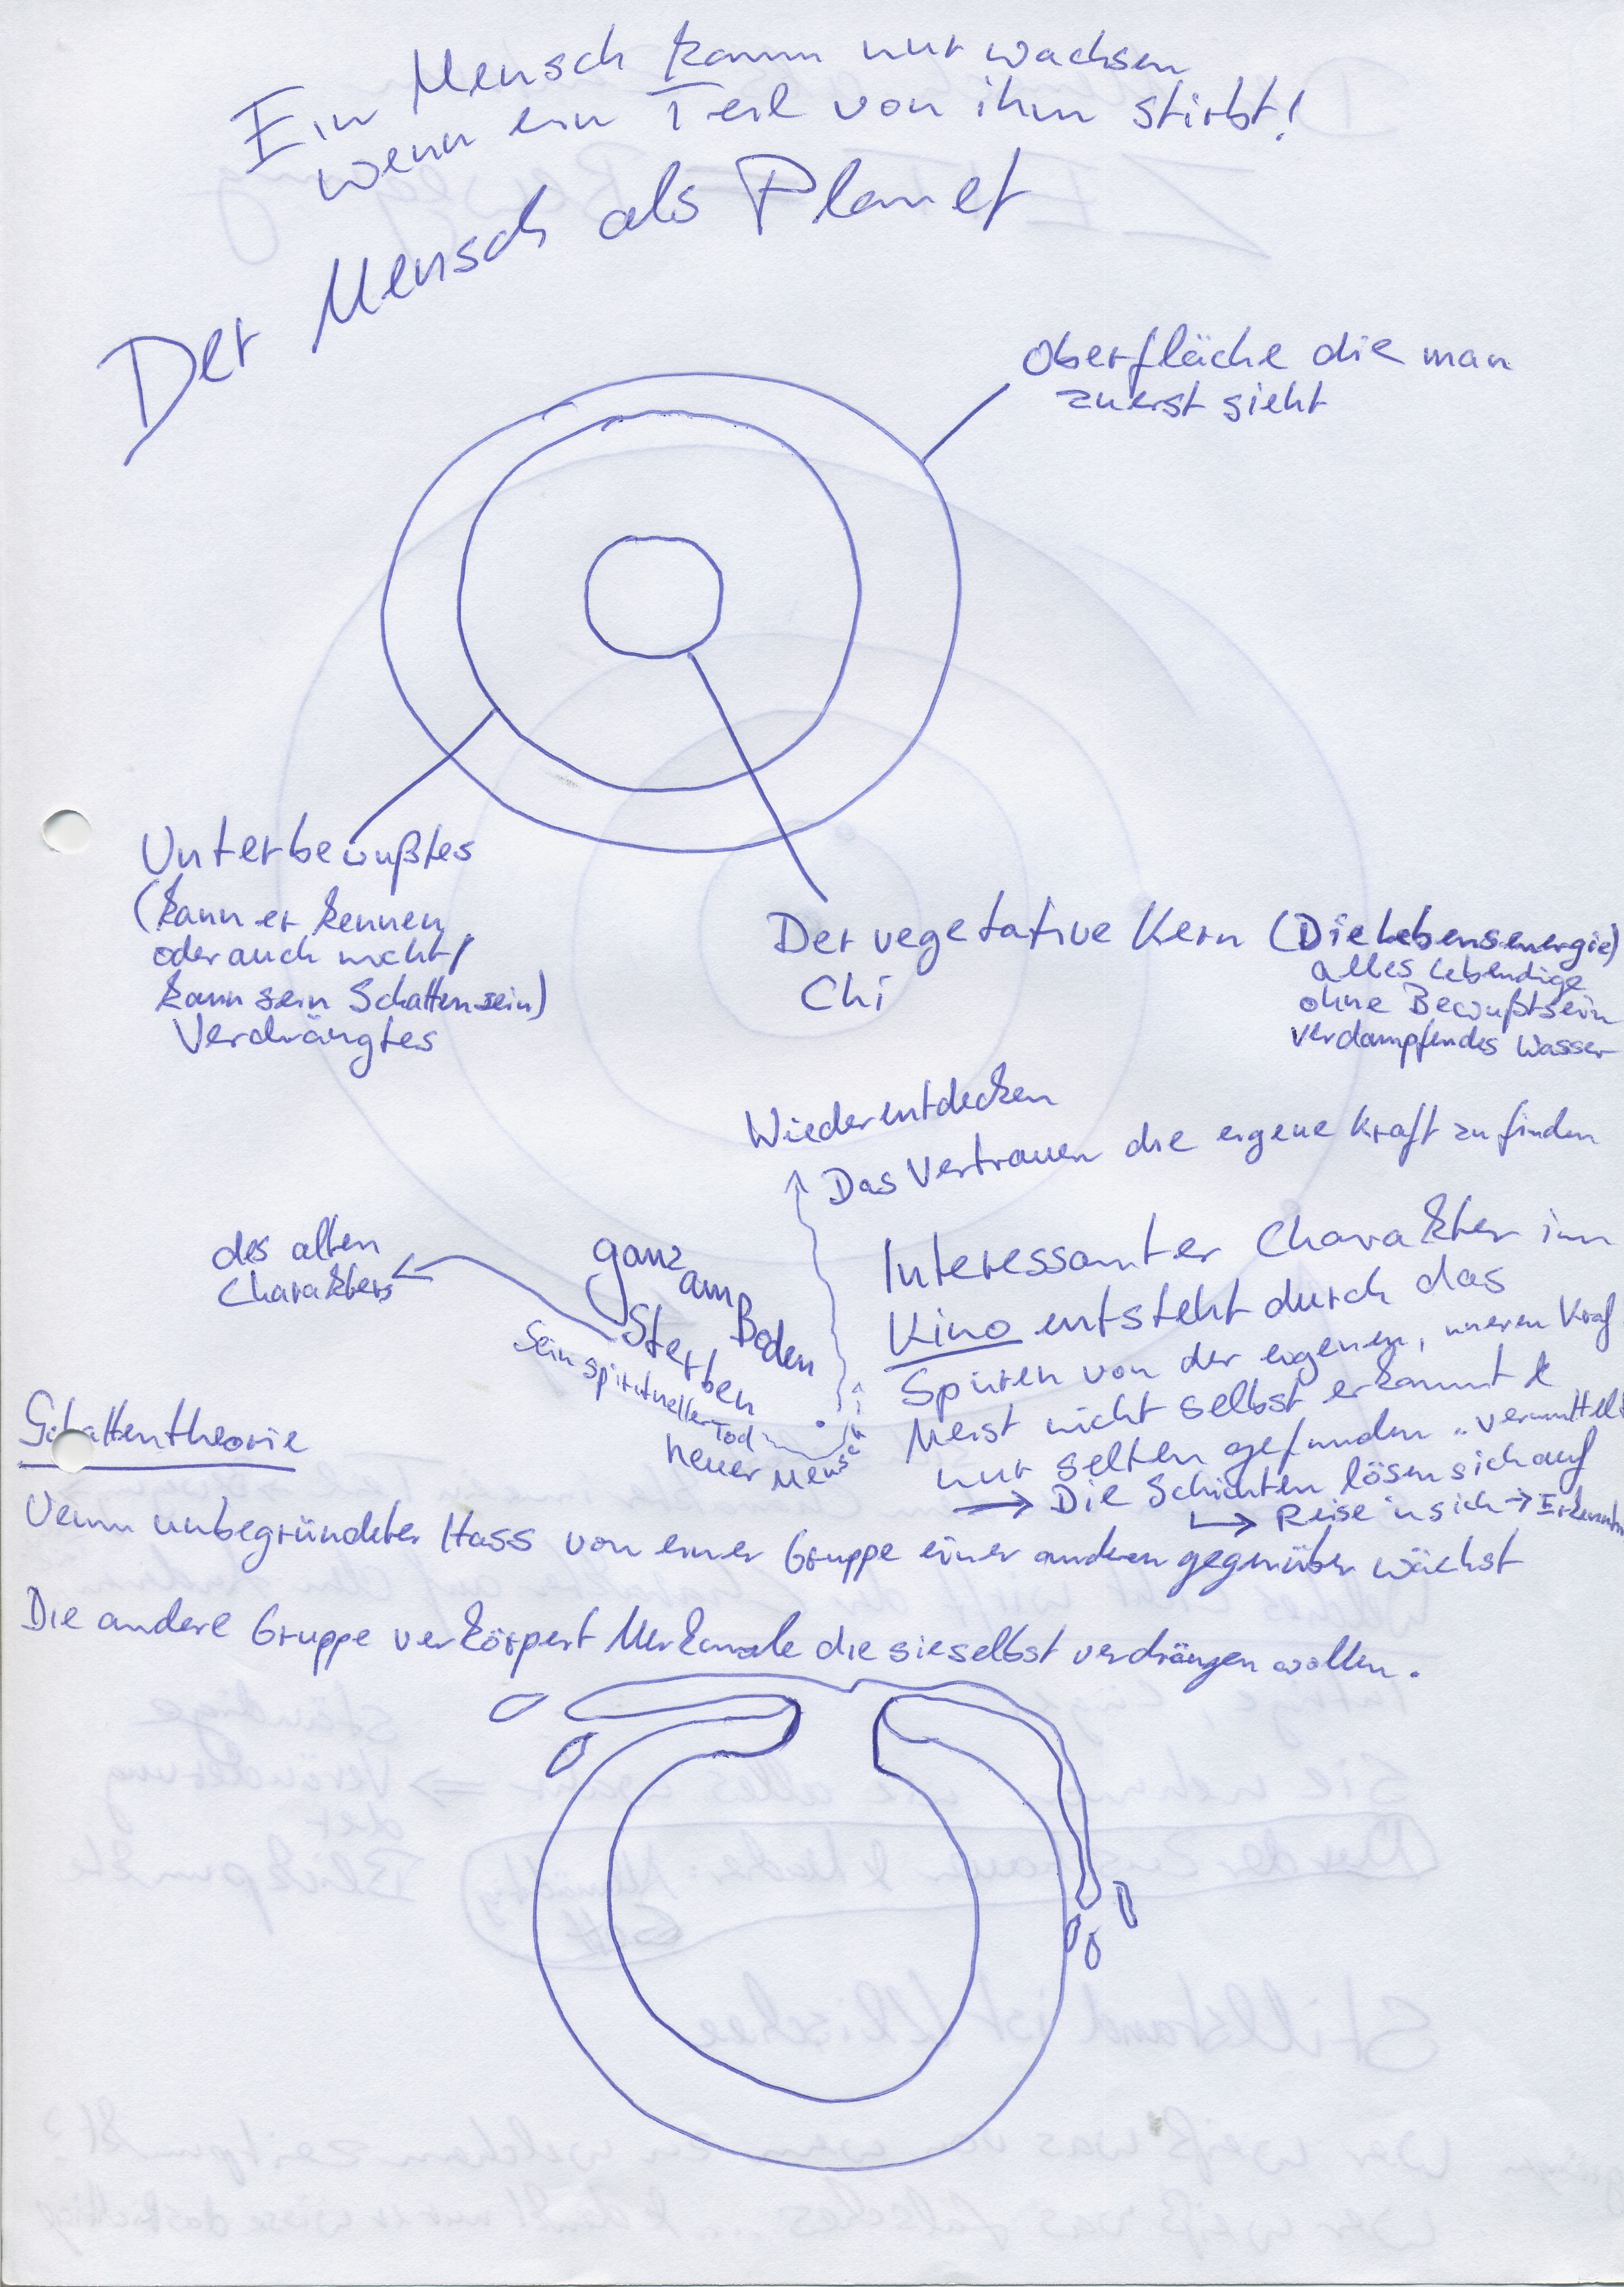 Ein Mensch kann nur wachsen
wenn ein Teil von ihm stirbt!
Der Mensch als Planet
Oberfläche die man
zuerst sieht
Unterbewußtes
(kann er kennen
oder auch nicht/
kann sein Schatten sein)
Verdrängtes
Der vegetative Kern (Die Lebensenergie)
Chi
alles Lebendige
ohne Bewußtsein
verdampfendes Wasser
Wiederentdecken
Das Vertrauen die eigene Kraft zu finden
des alten
Charakters
ganz am Boden
Sterben
Sein spiritueller Tod
neuer Mensch
Interessanter Charakter im
Kino entsteht durch das
Spüren von der eigenen, inneren Kraf
Meist nicht selbst erkannt &
nur selten gefunden .. vermittelt
→ Die Schichten lösen sich auf
↳ Reise in sich → Erkenntn
Schattentheorie
Wenn unbegründeter Hass von einer Gruppe einer anderen gegenüber wächst
Die andere Gruppe verkörpert Merkmale die sie selbst verdrängen wollen.
Stillstand ist Klischee